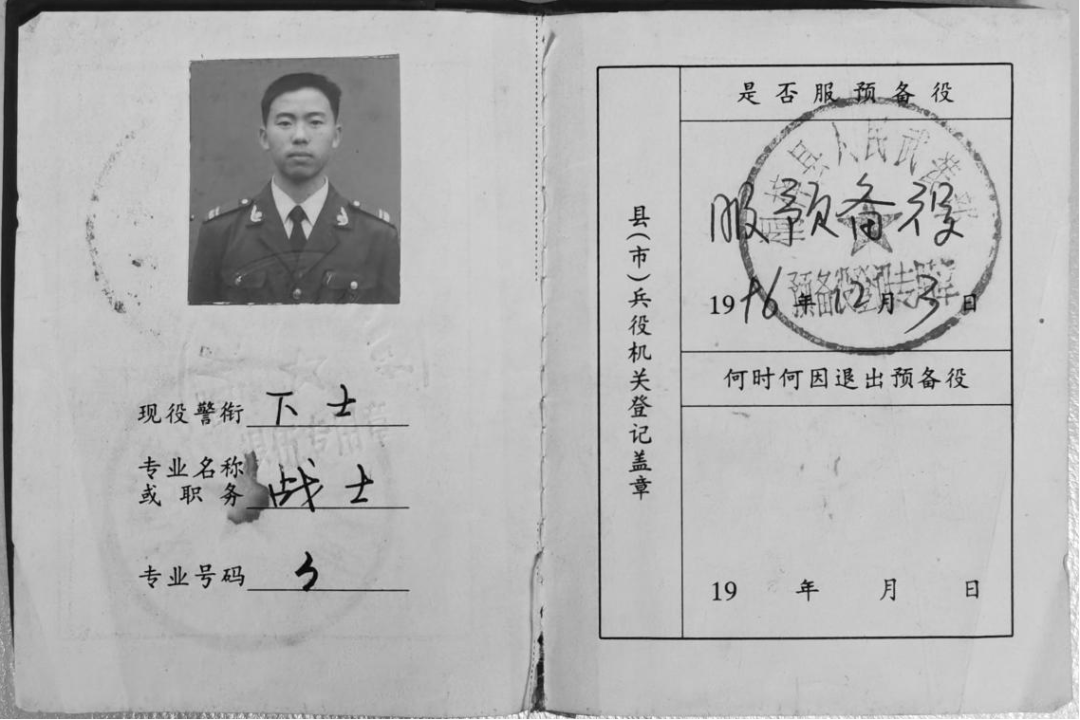 现役警衔 下士
专业名称
或职务 战士
专业号码
县(市)兵役机关登记盖章
是否服预备役
服预备役
年12月3日
预备役登记专用章
何时何因退出预备役
19 年 月 日